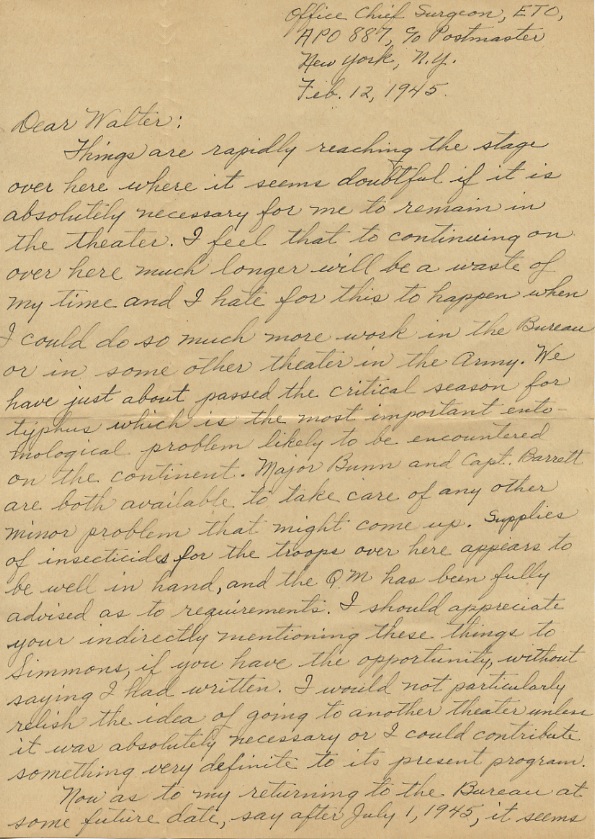 Office Chief Surgeon, ETO,
APO 887, c/o Postmaster
New York, N.Y.
Feb. 12, 1945.
Dear Walter:
Things are rapidly reaching the stage
over here where it seems doubtful if it is
absolutely necessary for me to remain in
the theater. I feel that to continuing on
over here much longer will be a waste of
my time and I hate for this to happen when
I could do so much more work in the Bureau
or in some other theater in the Army. We
have just about passed the critical season for
typhus which is the most important ento
mological problem likely to be encountered
on the continent. Major Bunn and Capt. Barrett
are both available to take care of any other
minor problem that might come up. Supplies
of insecticids for the troops over here appears to
be well in hand, and the QM has been fully
advised as to requirements. I should appreciate
your indirectly mentioning these things to
Simmons, if you have the opportunity, without
saying I had written. I would not particularly
relish the idea of going to another theater unless
it was absolutely necessary or I could contribute
something very definite to its present program.
Now as to my returning to the Bureau at
some future date, say after July 1, 1945, it seems